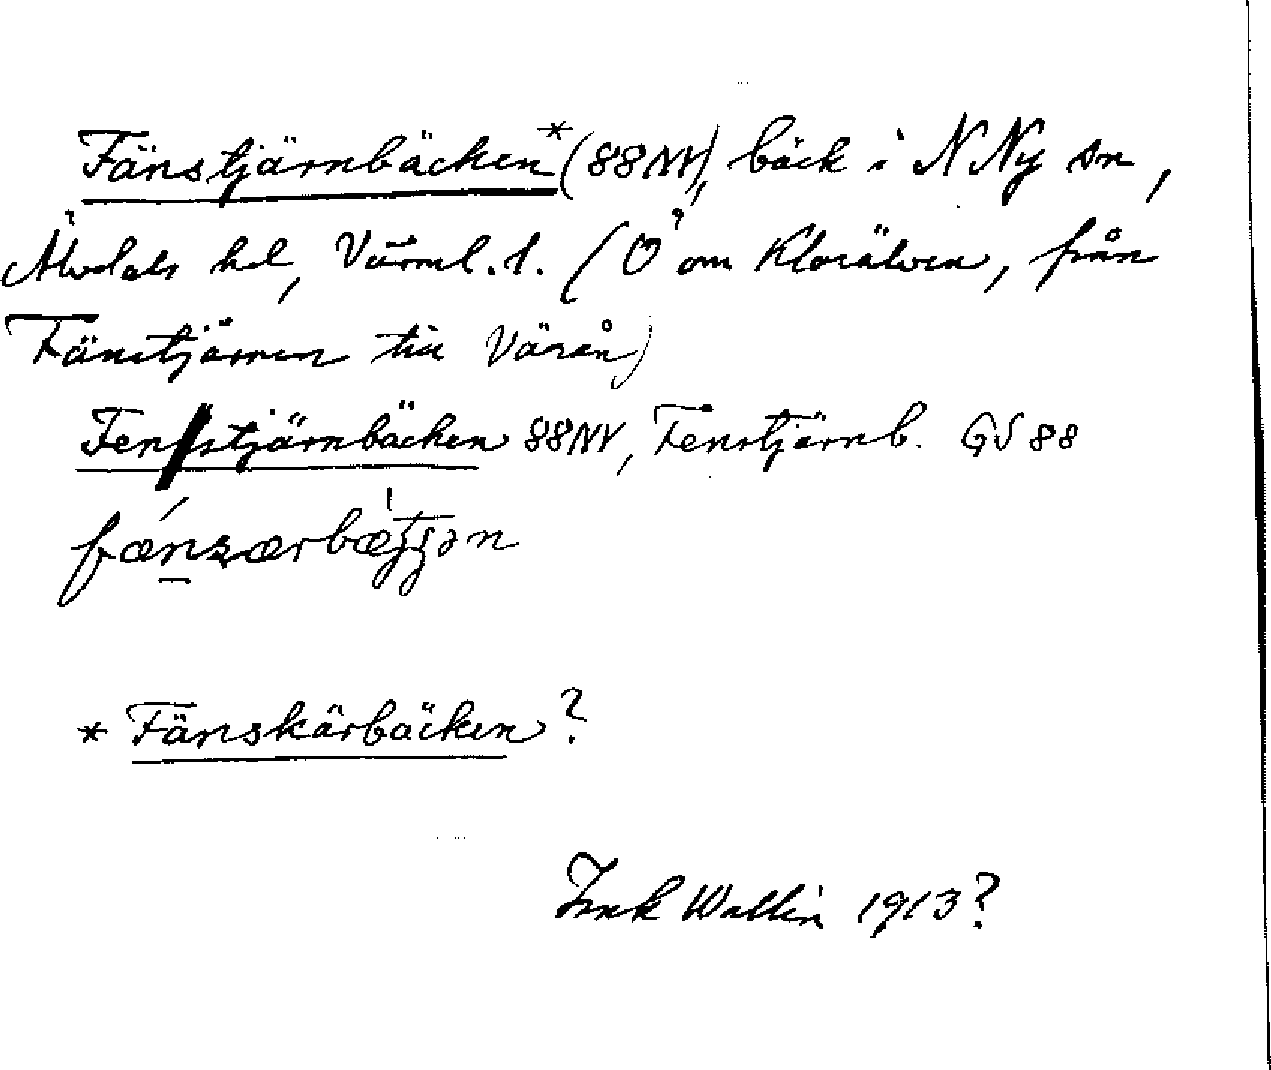 Fänstjärnbäcken* (88NV), bäck i N Ny sn,
Älvdals hd, Värml. l. (Ö om Klarälven, från
Fänstjärnen till Värån)
Fenstjärnbäcken 88NV, Fenstjärnb. GS 88
* Fänskärbäcken?
Wallin 1913?